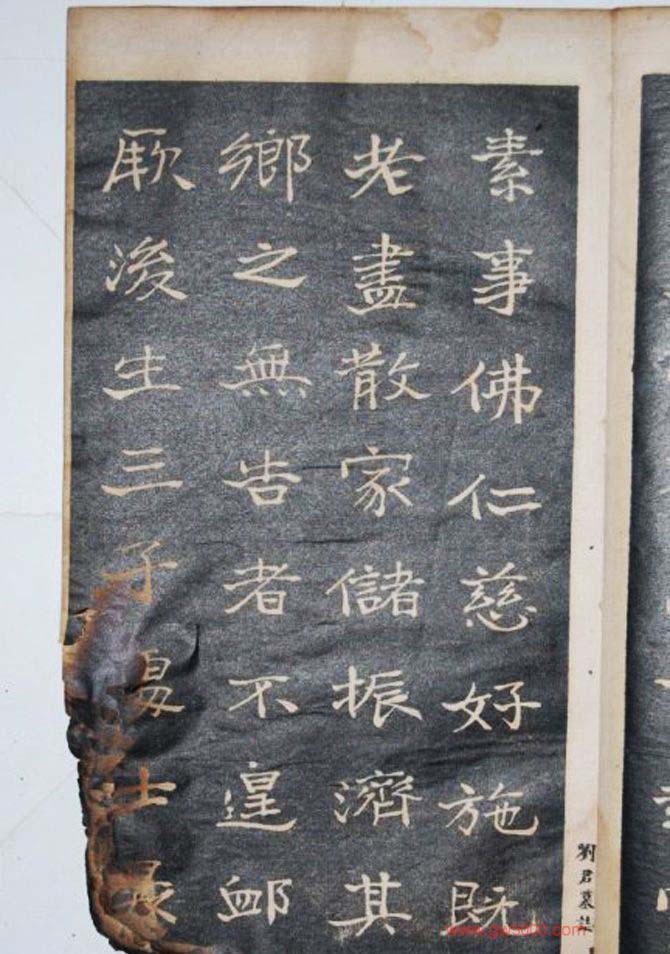 素事佛仁慈好施既
老盡散家儲振濟其
鄉之無告者不遑卹
厥後生三子
劉君墓誌